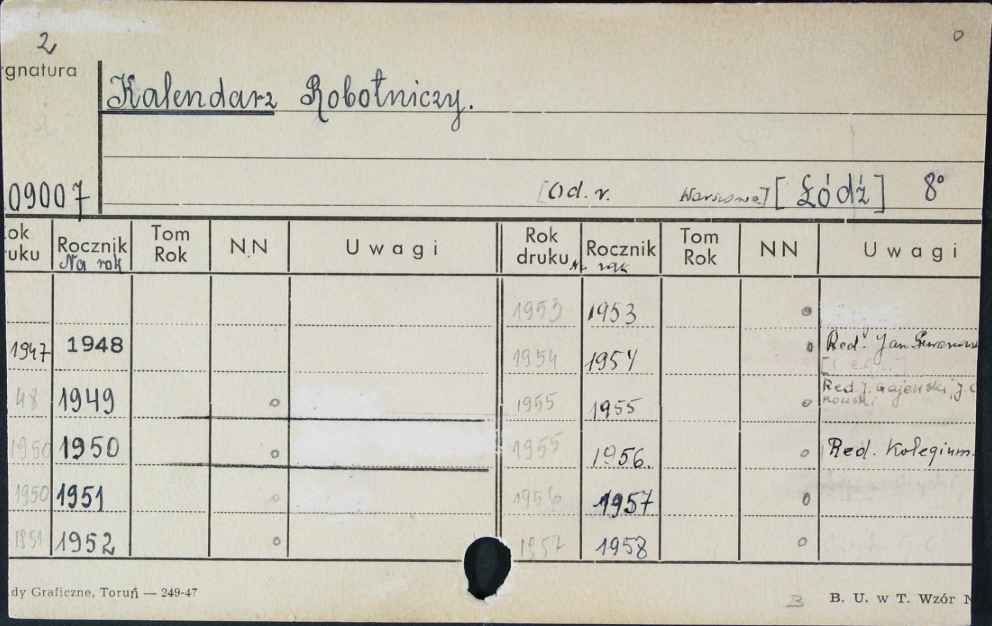 2
gnatura
Kalendarz Robotniczy.
09007
[Od. r. Warszawa] [Łódź] 8°
ok uku Rocznik Na rok Tom Rok NN Uwagi Rok druku Rocznik Na rok Tom Rok NN Uwagi
1953 1953
1947 1948 1954 1954 Red. Jan
48 1949 1955 1955 Red. J. Gajewski, J.
nowski
1950 1950 1955 1956. Red. Kolegium.
1950 1951 1956 1957
1951 1952 1957 1958
dy Graficzne, Toruń — 249-47
B B. U. w T. Wzór N